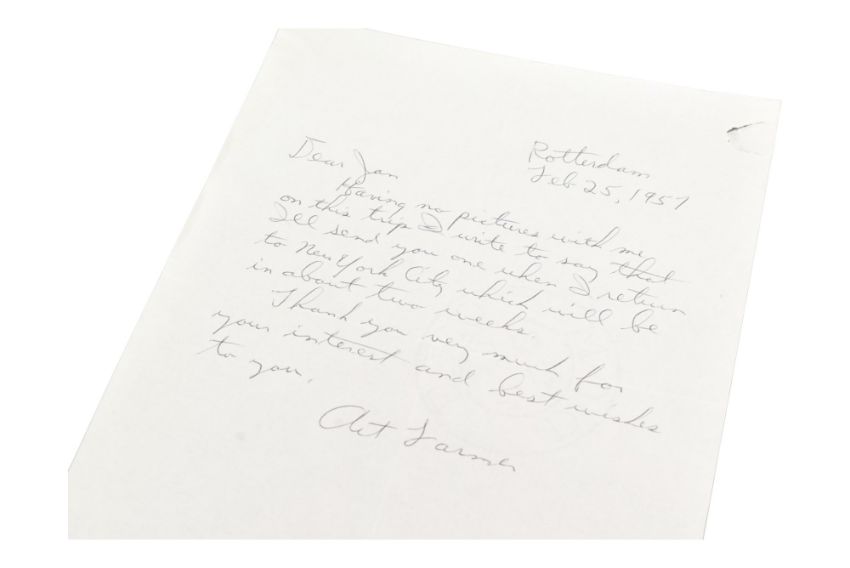 Rotterdam
Feb 25, 1957
Dear Jan
Having no pictures with me
on this trip I write to say that
I'll send you one when I return
to New York City which will be
in about two weeks.
Thank you very much for
your interest and best wishes
to you.
Art Farmer